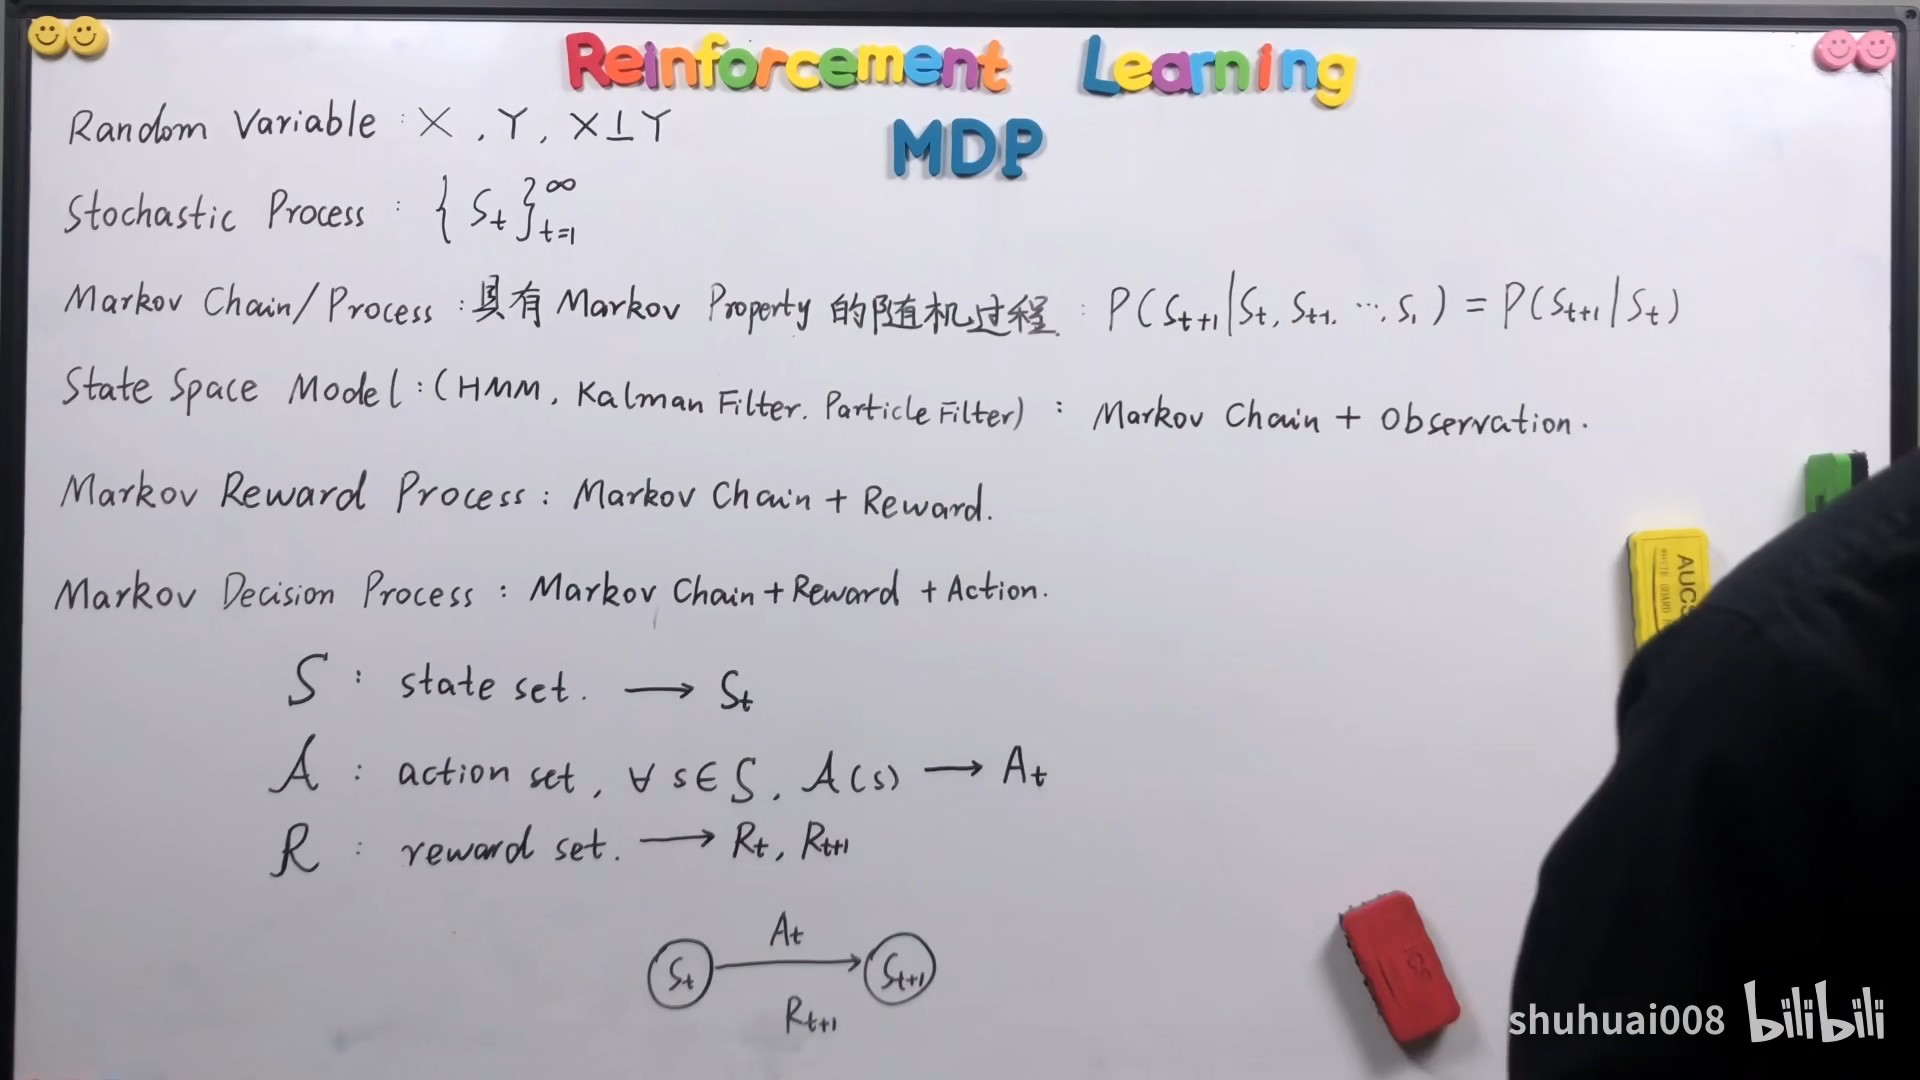 Reinforcement Learning
MDP
Random Variable : X , Y , X⊥Y
Stochastic Process : { S_t }_{t=1}^∞
Markov Chain/Process : 具有 Markov Property 的随机过程 : P(S_{t+1}|S_t, S_{t-1}, ..., S_1) = P(S_{t+1}|S_t)
State Space Model : (HMM, Kalman Filter. Particle Filter) : Markov Chain + Observation.
Markov Reward Process : Markov Chain + Reward.
Markov Decision Process : Markov Chain + Reward + Action.
S : state set. → S_t
A : action set, ∀ s∈S, A(s) → A_t
R : reward set. → R_t, R_{t+1}
A_t
S_t → S_{t+1}
R_{t+1}
shuhuai008 bilibili